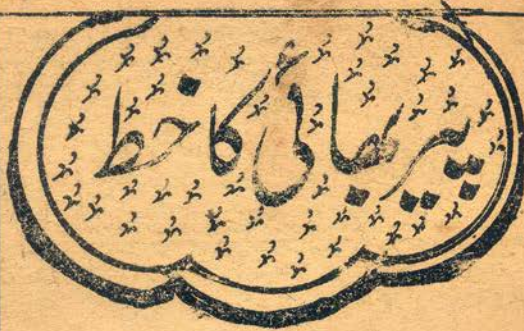 پیر بھائی کا خط